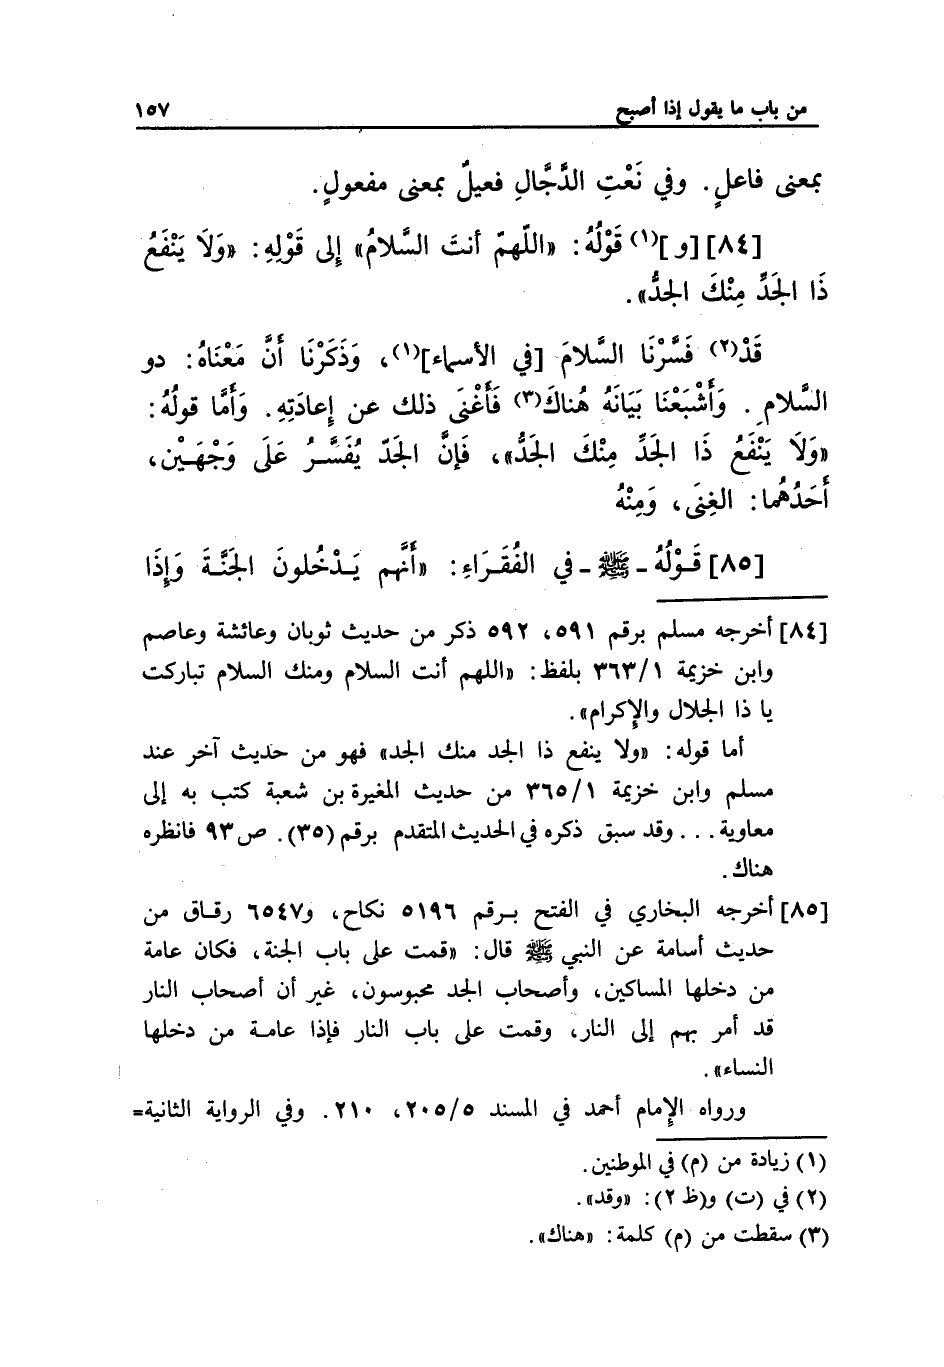 من باب ما يقول إذا أصبح ١٥٧
بمعنى فاعلٍ. وفي نَعْتِ الدَّجَّالِ فعيلٌ بمعنى مفعولٍ.
[٨٤] [و](١) قَوْلُهُ: «اللّهمّ أنتَ السَّلامُ» إلى قَوْلِهِ: «وَلَا يَنْفَعُ
ذَا الجَدِّ مِنْكَ الجَدُّ».
قَدْ(٢) فَسَّرْنَا السَّلامَ [في الأسماء](١)، وَذَكَرْنَا أَنَّ مَعْنَاهُ: ذو
السَّلامِ. وَأَشْبَعْنَا بَيَانَهُ هُناكَ(٣) فَأَغْنَى ذلك عن إعادَتِهِ. وَأَمَّا قولُهُ:
«وَلَا يَنْفَعُ ذَا الجَدِّ مِنْكَ الجَدُّ»، فَإنَّ الجَدّ يُفَسَّرُ عَلَى وَجْهَيْن،
أَحَدُهُما: الغِنَى، وَمِنْهُ
[٨٥] قَوْلُهُ - ﷺ - في الفُقَرَاءِ: «أَنَّهم يَدْخُلونَ الجَنَّةَ وَإذَا
[٨٤] أخرجه مسلم برقم ٥٩١، ٥٩٢ ذكر من حديث ثوبان وعائشة وعاصم
وابن خزيمة ٣٦٣/١ بلفظ: «اللهم أنت السلام ومنك السلام تباركت
يا ذا الجلال والإكرام».
أما قوله: «ولا ينفع ذا الجد منك الجد» فهو من حديث آخر عند
مسلم وابن خزيمة ٣٦٥/١ من حديث المغيرة بن شعبة كتب به إلى
معاوية... وقد سبق ذكره في الحديث المتقدم برقم (٣٥). ص ٩٣ فانظره
هناك.
[٨٥] أخرجه البخاري في الفتح برقم ٥١٩٦ نكاح، و٦٥٤٧ رقاق من
حديث أسامة عن النبي ﷺ قال: «قمت على باب الجنة، فكان عامة
من دخلها المساكين، وأصحاب الجد محبوسون، غير أن أصحاب النار
قد أمر بهم إلى النار، وقمت على باب النار فإذا عامة من دخلها
النساء».
ورواه الإمام أحمد في المسند ٢٠٥/٥، ٢١٠. وفي الرواية الثانية=
(١) زيادة من (م) في الموطنين.
(٢) في (ت) و(ظ ٢): «وقد».
(٣) سقطت من (م) كلمة: «هناك».